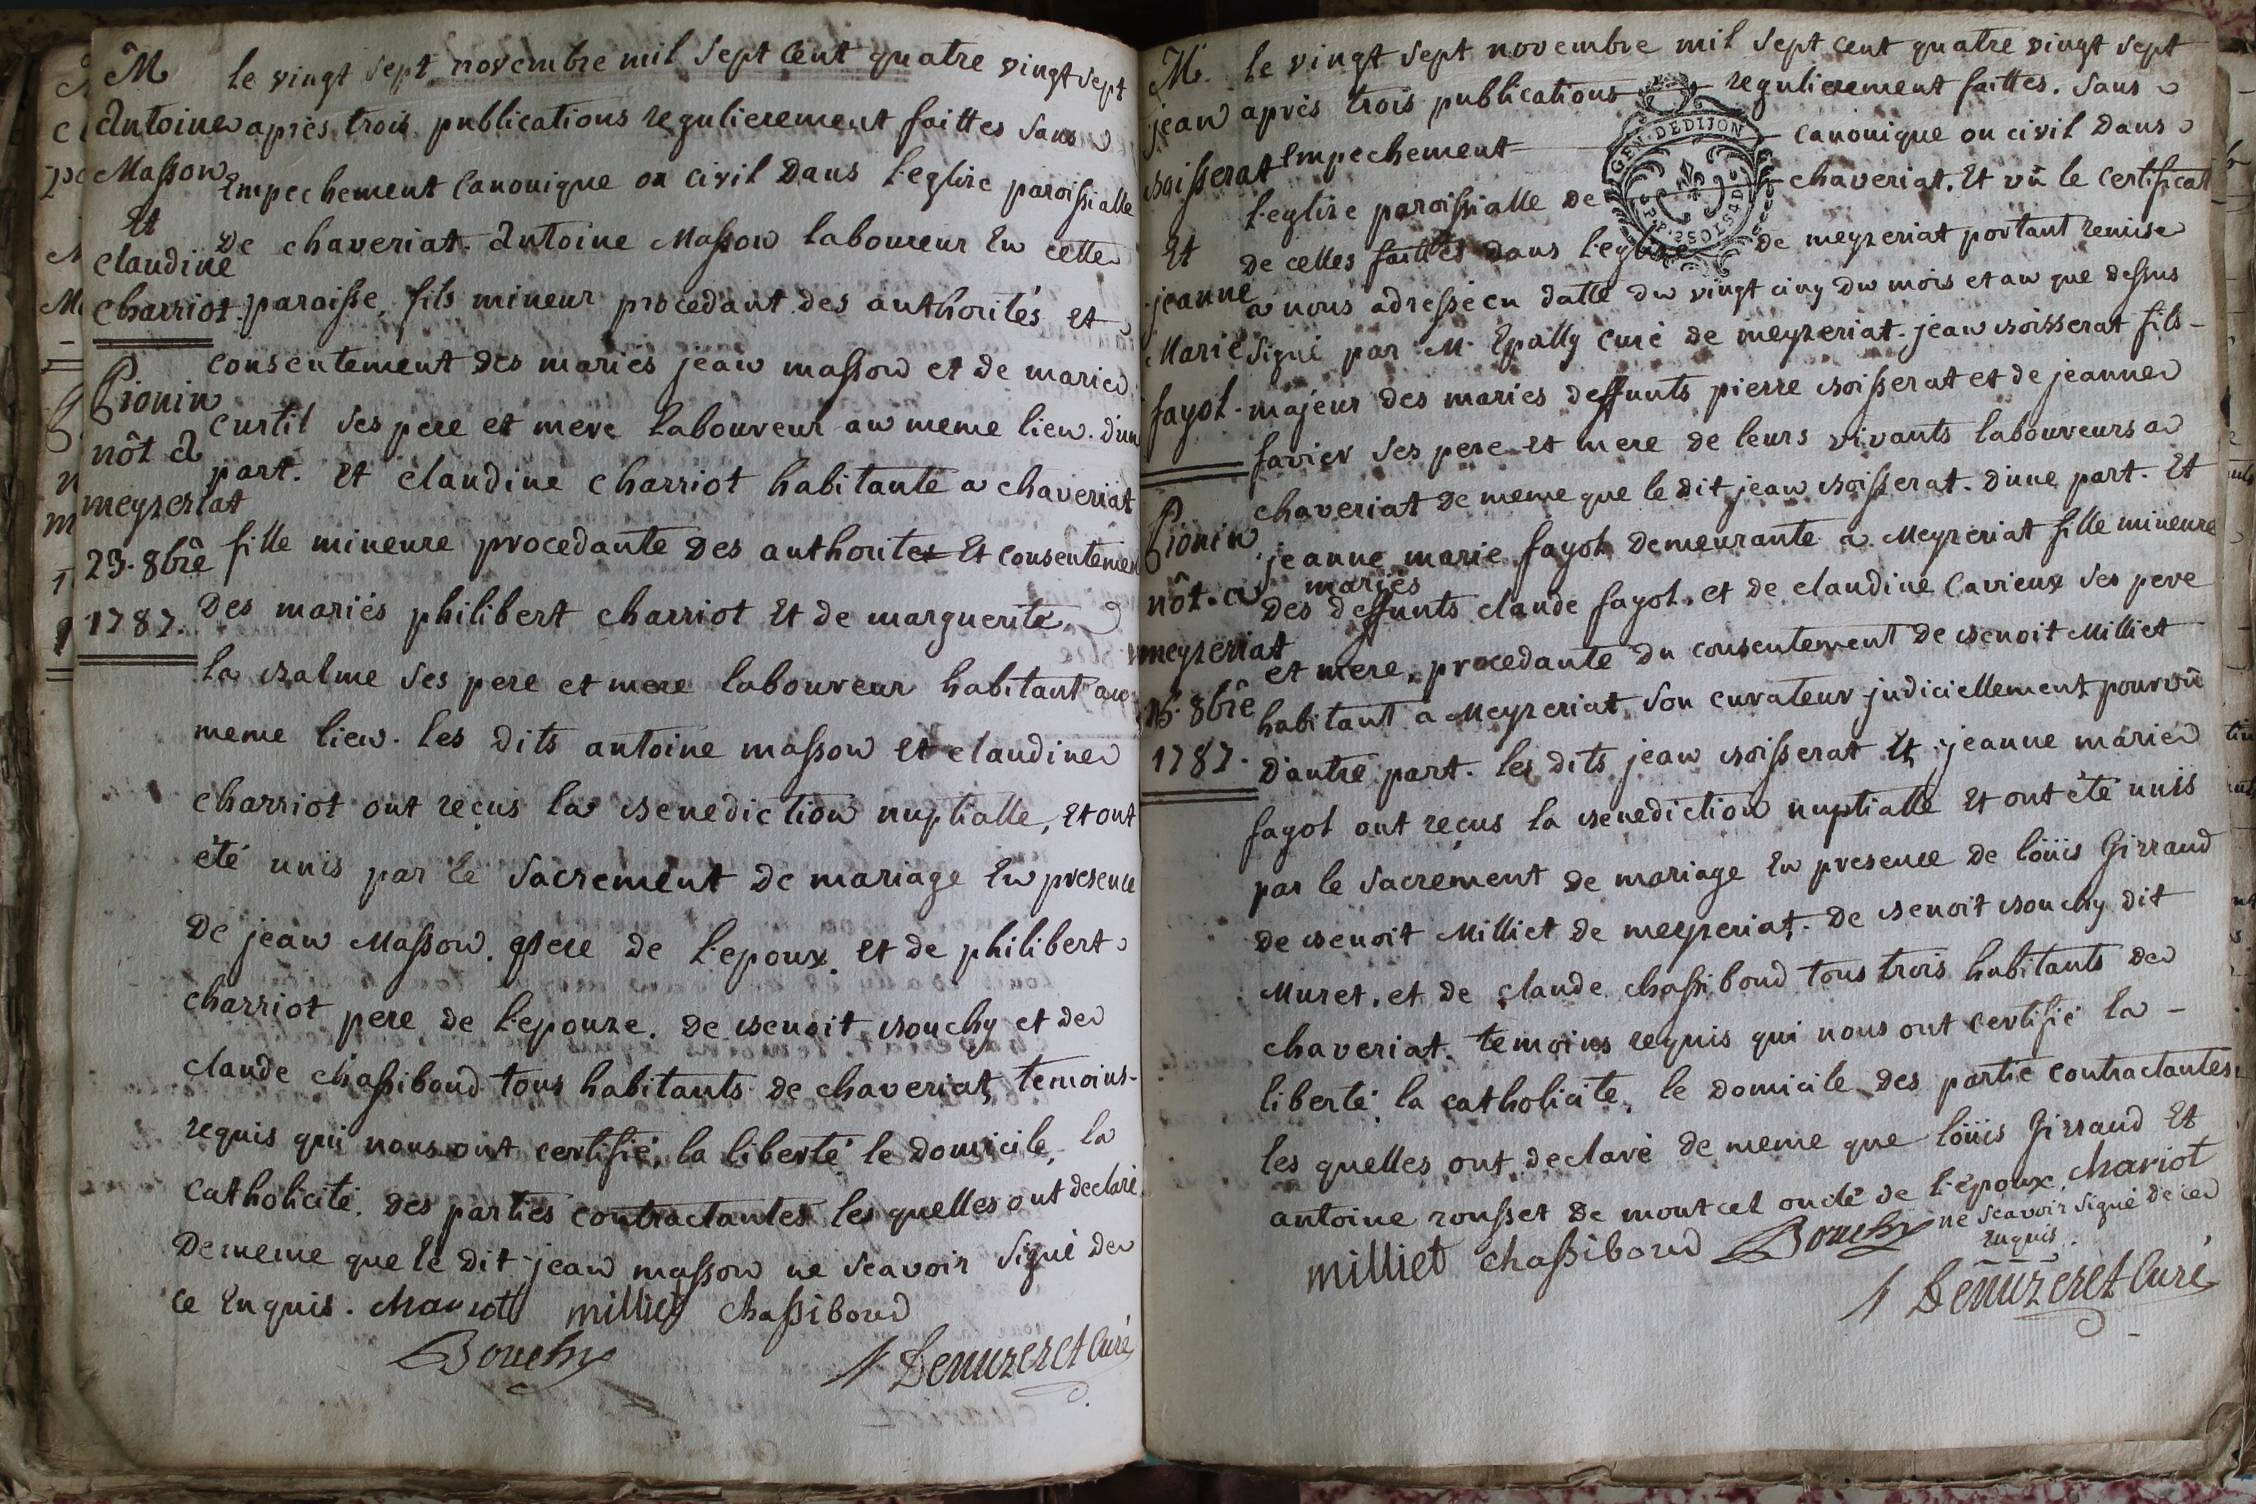 M
Antoine
Masson
Et
claudine
Charriot.
Pionin
nôt a
meyzeriat
23. 8bre
1787.
le vingt sept novembre mil sept cent quatre vingt sept
après trois publications regulierement faittes sans
Empechement Canonique ou civil Dans l'eglise paroissialle
De chaveriat. Antoine Masson laboureur En cette
paroisse, fils mineur procedant des authorités et
consentement des mariés jean masson et de marie
curtil ses pere et mere laboureur au meme lieu. d'un
part. Et claudine charriot habitante a chaveriat
fille mineure procedante des authorites Et consenteme
Des mariés philibert charriot Et de marguerite
la balme ses pere et mere laboureur habitant au
meme lieu. les dits antoine masson et claudine
charriot ont reçus la benediction nuptialle, et ont
été unis par le sacrement de mariage En presence
De jean Masson. pere de l'epoux. et de philibert
charriot pere de l'epouze. de benoit bouchy et de
claude chassiboud tous habitants de chaveriat, temoins-
requis qui nous ont certifié, la liberté le domicile, la
catholicité. des parties contractantes les quelles ont declaré
De meme que le dit jean masson ne scavoir signé de
ce Enquis. charriot milliet chassiboud
Bouchy Denuzeret Curé
M.
jean
boisserat
Et
jeanne
Marie
fayol.
Pionin
nôt. a
meyzeriat
16. 8bre
1787.
le vingt sept novembre mil sept cent quatre vingt sept
après trois publications regulierement faittes. sans
Empechement canonique ou civil dans
l'eglise paroissialle de chaveriat. Et vû le certificat
GEN. DE DIJON
De celles faittes dans l'eglise de meyzeriat portant remise
a nous adressé en datte du vingt cinq du mois et an que dessus
signé par M. Epally curé de meyzeriat. jean boisserat fils-
majeur des mariés deffunts pierre boisserat et de jeanne
favier ses pere et mere de leurs vivants laboureurs a
chaveriat de meme que le dit jean boisserat. d'une part. Et
jeanne marie fayol demeurante a Meyzeriat fille mineure
mariés
des deffunts claude fayol, et de claudine Cavieux ses pere
et mere, procedante du consentement de benoit Milliet
habitant a Meyzeriat son curateur judiciellement pourvû
d'autre part. les dits jean boisserat Et jeanne marie
fayol ont reçus la benediction nuptialle Et ont été unis
par le sacrement de mariage En presence de loüis Girraud
de benoit Milliet de meyzeriat. De benoit bouchy dit
Muret, et de claude chassiboud tous trois habitants de
chaveriat. temoins requis qui nous ont certifié la -
liberté la catholicité, le domicile des partie contractantes
les quelles ont declaré de meme que loüis Girraud Et
antoine rousset de montcel oncle de l'epoux. chariot
milliet chassiboud Bouchy ne scavoir signé de ce
Enquis.
Denuzeret Curé